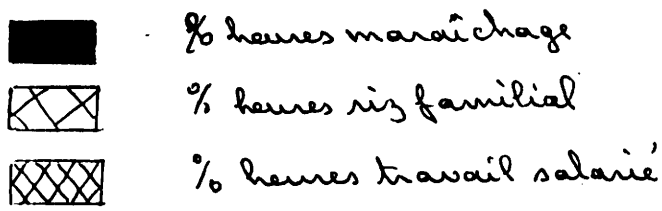 % heures maraîchage
% heures riz familial
% heures travail salarié